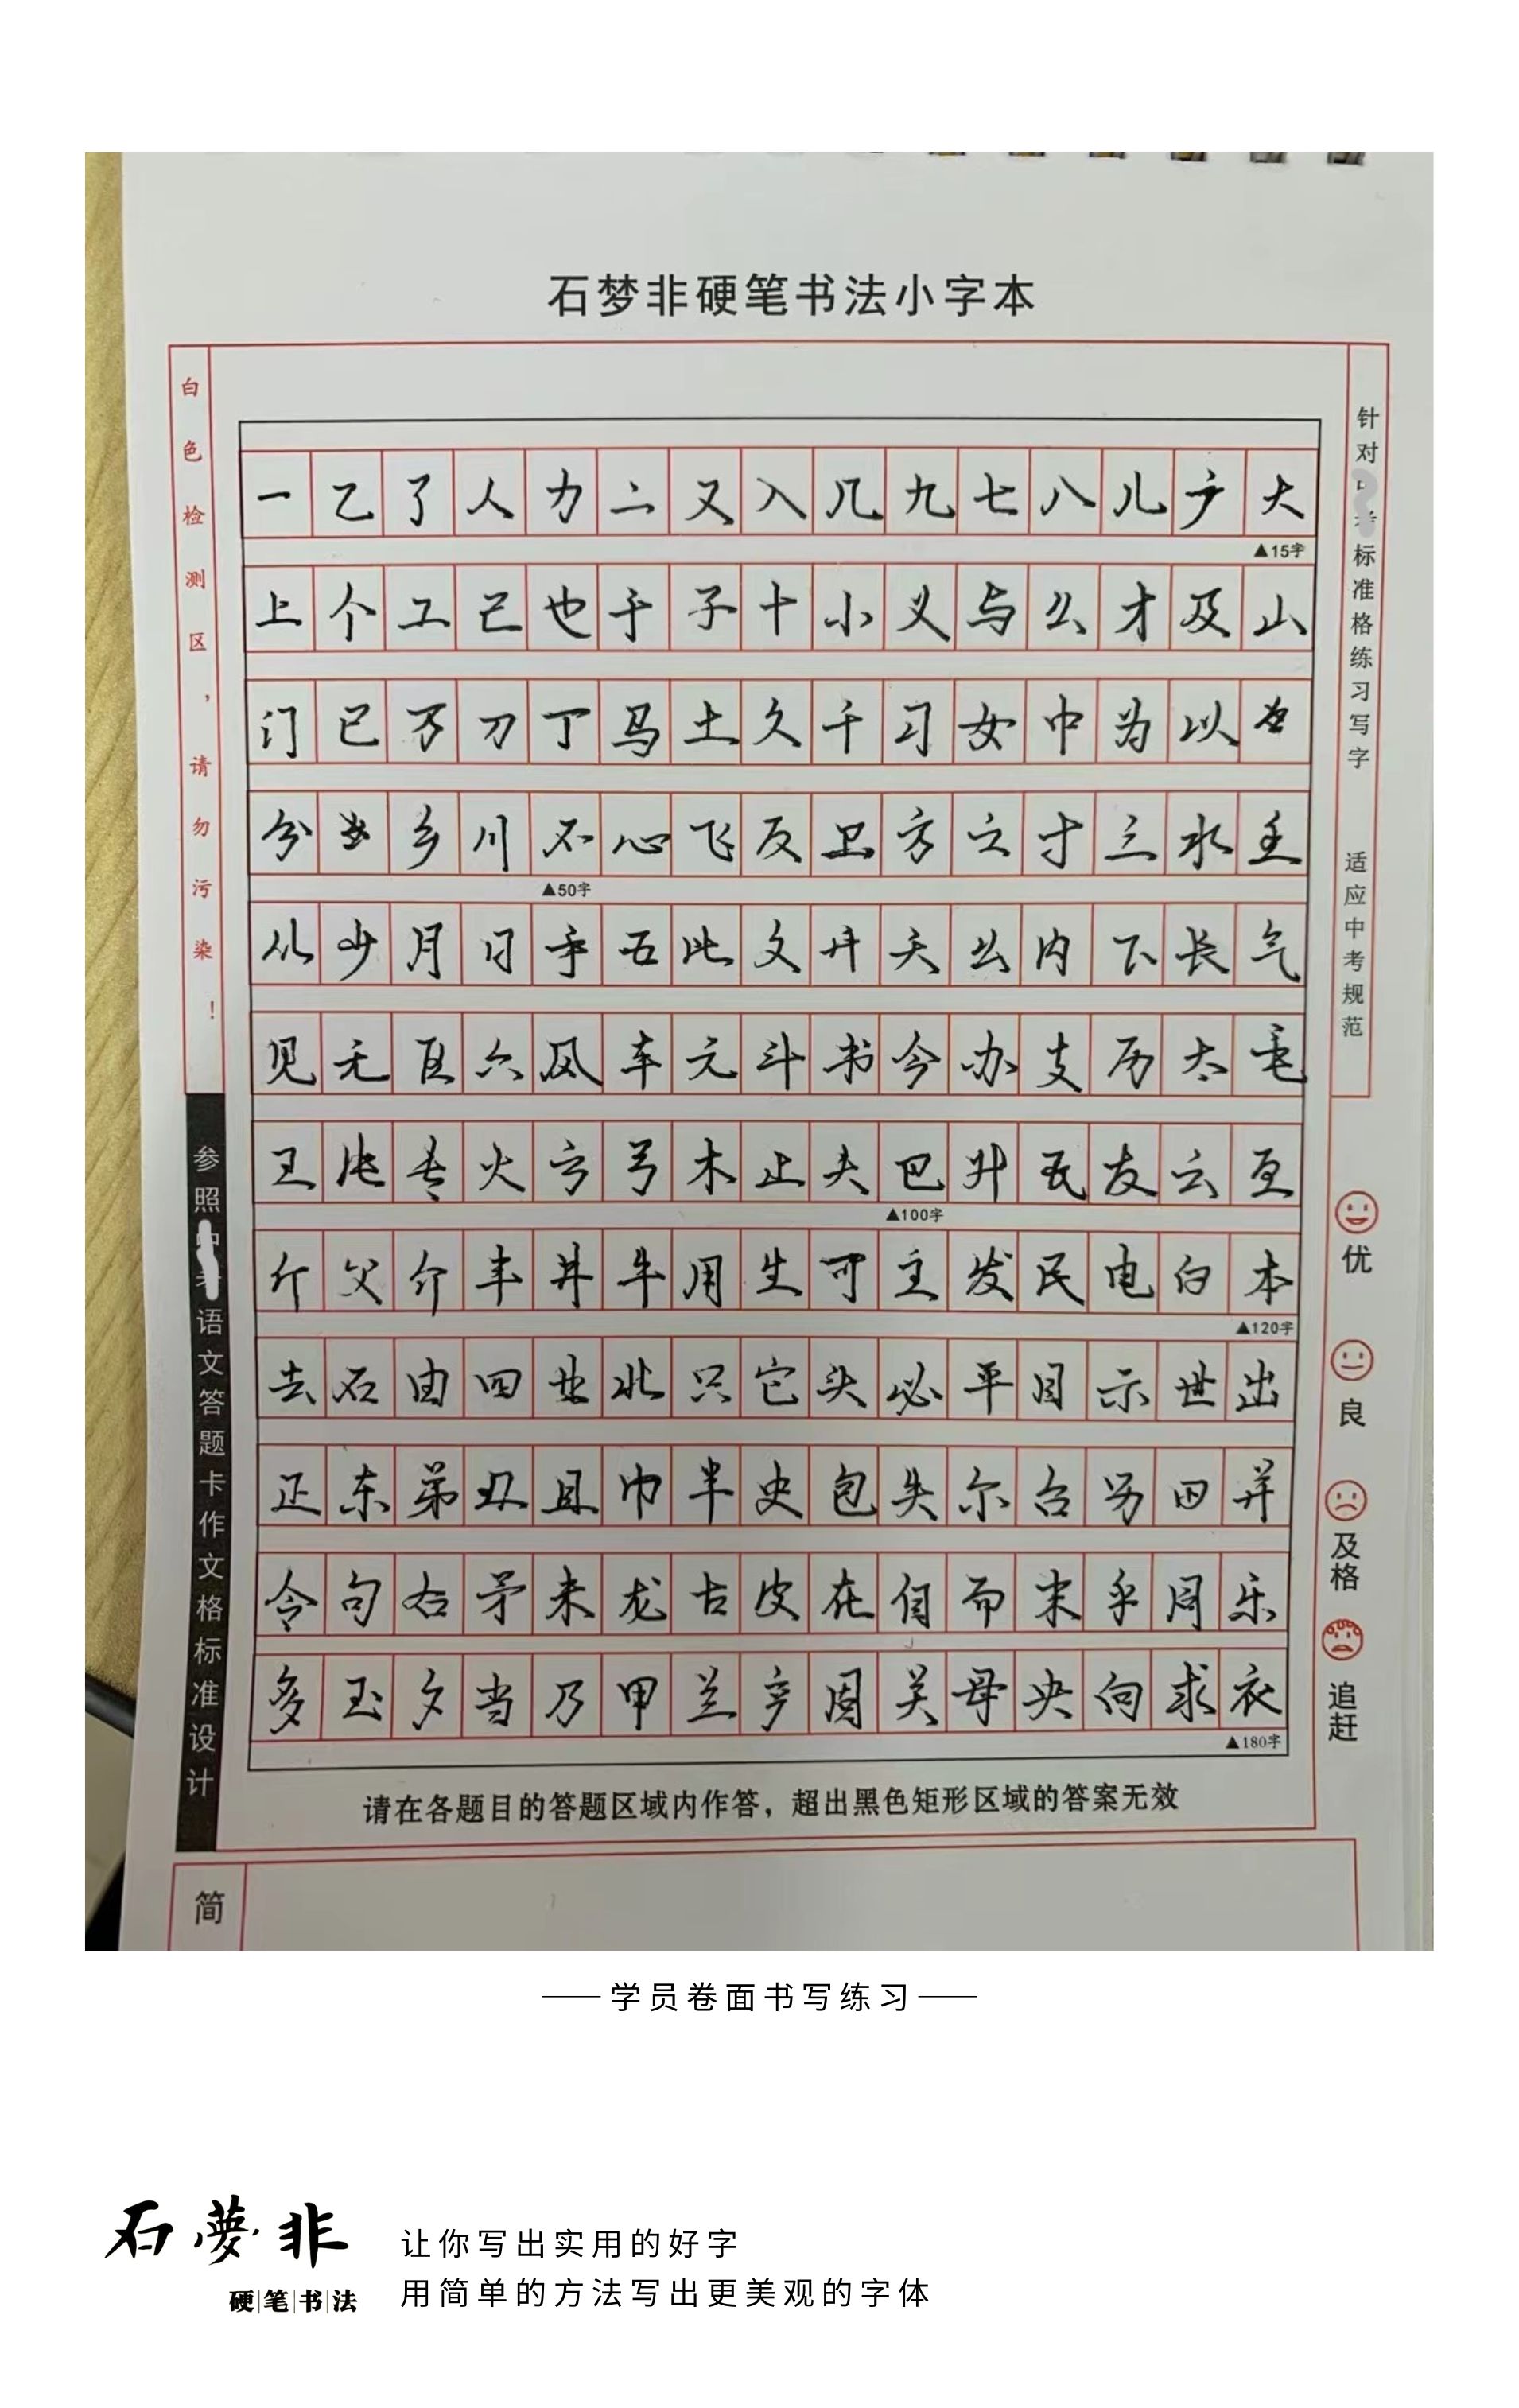 石梦非硬笔书法小字本
白色检测区，请勿污染！
一乙了人力二又入几九七八儿广大
▲15字
上个工己也于子十小义与么才及山
门已万刀丁马土久千习女中为以
分乡川不心飞反卫方六寸三水王
▲50字
从少月日手五比文井天么内下长气
见无巨六风车元斗书今办支历太毛
王长专火方弓木止夫巴升瓦友云互
▲100字
斤父介丰井牛用生可主发民电白本
▲120字
去石由四业北只它头必平目示世出
正东弟丑且巾半史包失尔台另田并
令句右矛未龙古皮在自而末乎周乐
多玉夕当乃甲兰产固关母央向求衣
▲180字
请在各题目的答题区域内作答，超出黑色矩形区域的答案无效
针对标准格练习写字 适应中考规范
优
良
及格
追赶
参照语文答题卡作文格标准设计
简
学员卷面书写练习
石夢非
硬笔书法
让你写出实用的好字
用简单的方法写出更美观的字体